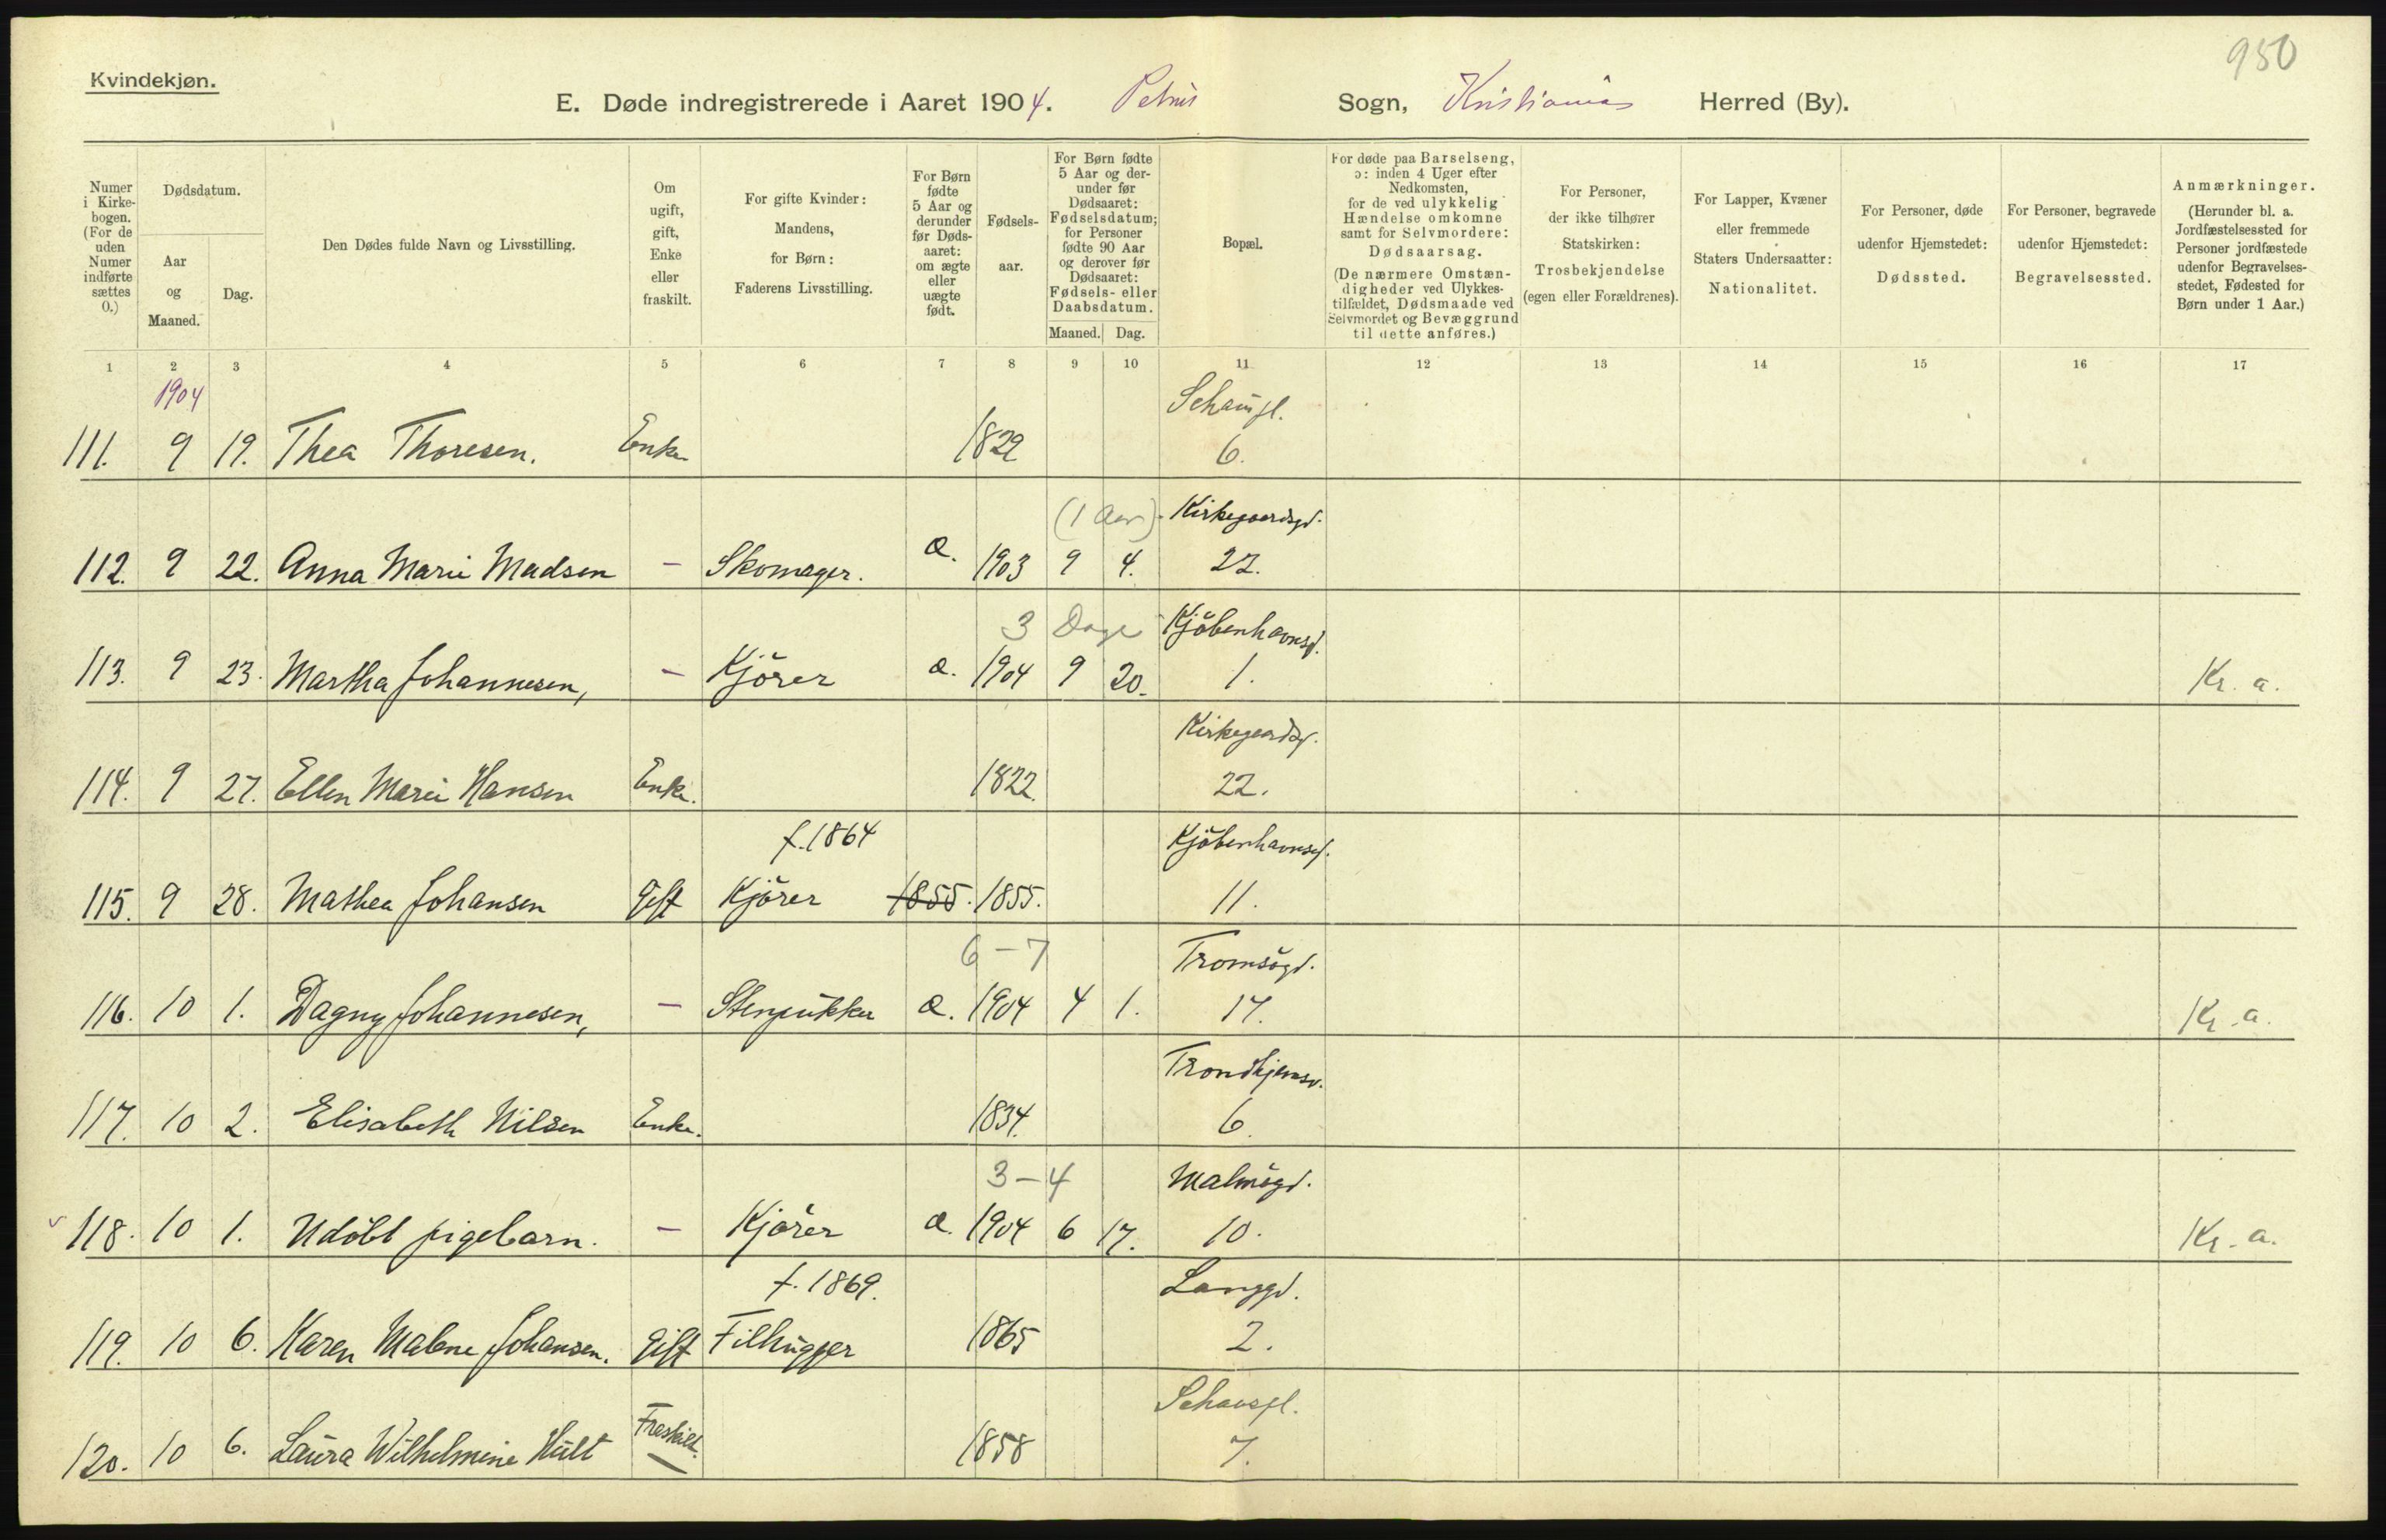 950
Kvindekjøn.
E. Døde indregistrerede i Aaret 1904. Petrus Sogn, Kristiania Herred (By).
Numer i Kirkebogen. (For de uden Numer indførte sættes 0.)
Dødsdatum.
Aar og Maaned.
Dag.
Den Dødes fulde Navn og Livsstilling.
Om ugift, gift, Enke eller fraskilt.
For gifte Kvinder: Mandens, for Børn: Faderens Livsstilling.
For Børn fødte 5 Aar og derunder før Dødsaaret: om ægte eller uægte født.
Fødselsaar.
For Børn fødte 5 Aar og derunder før Dødsaaret: Fødselsdatum; for Personer fødte 90 Aar og derover før Dødsaaret: Fødsels- eller Daabsdatum.
Maaned. Dag.
Bopæl.
For døde paa Barselseng, ɔ: inden 4 Uger efter Nedkomsten, for de ved ulykkelig Hændelse omkomne samt for Selvmordere: Dødsaarsag. (De nærmere Omstændigheder ved Ulykkestilfældet, Dødsmaade ved Selvmordet og Bevæggrund til dette anføres.)
For Personer, der ikke tilhører Statskirken: Trosbekjendelse (egen eller Forældrenes).
For Lapper, Kvæner eller fremmede Staters Undersaatter: Nationalitet.
For Personer, døde udenfor Hjemstedet: Dødssted.
For Personer, begravede udenfor Hjemstedet: Begravelsessted.
Anmærkninger. (Herunder bl. a. Jordfæstelsessted for Personer jordfæstede udenfor Begravelsesstedet, Fødested for Børn under 1 Aar.)
1 2 3 4 5 6 7 8 9 10 11 12 13 14 15 16 17
1904
111. 9 19. Thea Thoresen. Enke 1829 6.
(1 Aar) Kirkegaardsgd.
112. 9 22. Anna Marie Madsen - Skomager. æ. 1903 9 4. 27.
3 Dage Kjöbenhavnsg.
113. 9 23. Martha Johannesen, - Kjörer æ. 1904 9 20. 1. Kr. a.
Kirkegaardsg.
114. 9 27. Ellen Marie Hansen Enke. 1822. 22.
f. 1864 Kjöbenhavnsg.
115. 9 28. Mathea Johansen Gift Kjörer 1855. 1855. 11.
6-7 Tromsögd.
116. 10 1. Dagny Johannesen, - Stenpukker æ. 1904 4 1. 17. Kr. a.
Trondhjemsv.
117. 10 2. Elisabeth Nilsen Enke. 1834. 6.
3-4 Malmögd.
118. 10 1. Udöbt pigebarn. - Kjörer æ. 1904 6 17. 10. Kr. a.
f. 1869. Langgd.
119. 10 6. Karen Malene Johansen. Gift Filhugger 1865 2.
120. 10 6. Laura Wilhelmine Hult Fraskilt. 1858 7.